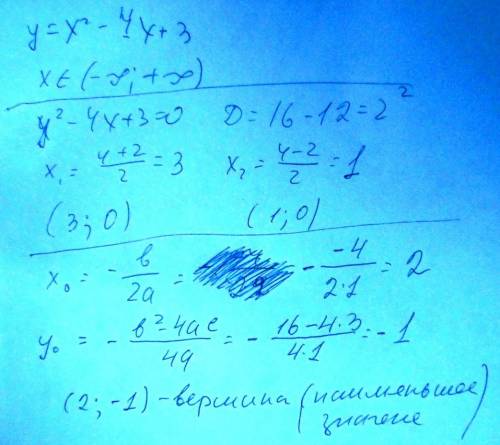 y = x² - 4x + 3
x ∈ (-∞; +∞)
y² - 4x + 3 = 0 D = 16 - 12 = 2²
x₁ = (4+2)/2 = 3 x₂ = (4-2)/2 = 1
(3; 0) (1; 0)
x₀ = - b/2a = - -4/2·1 = 2
y₀ = - (b² - 4ac)/4a = - (16 - 4·3)/4·1 = -1
(2; -1) - вершина (наименьшое
значение)